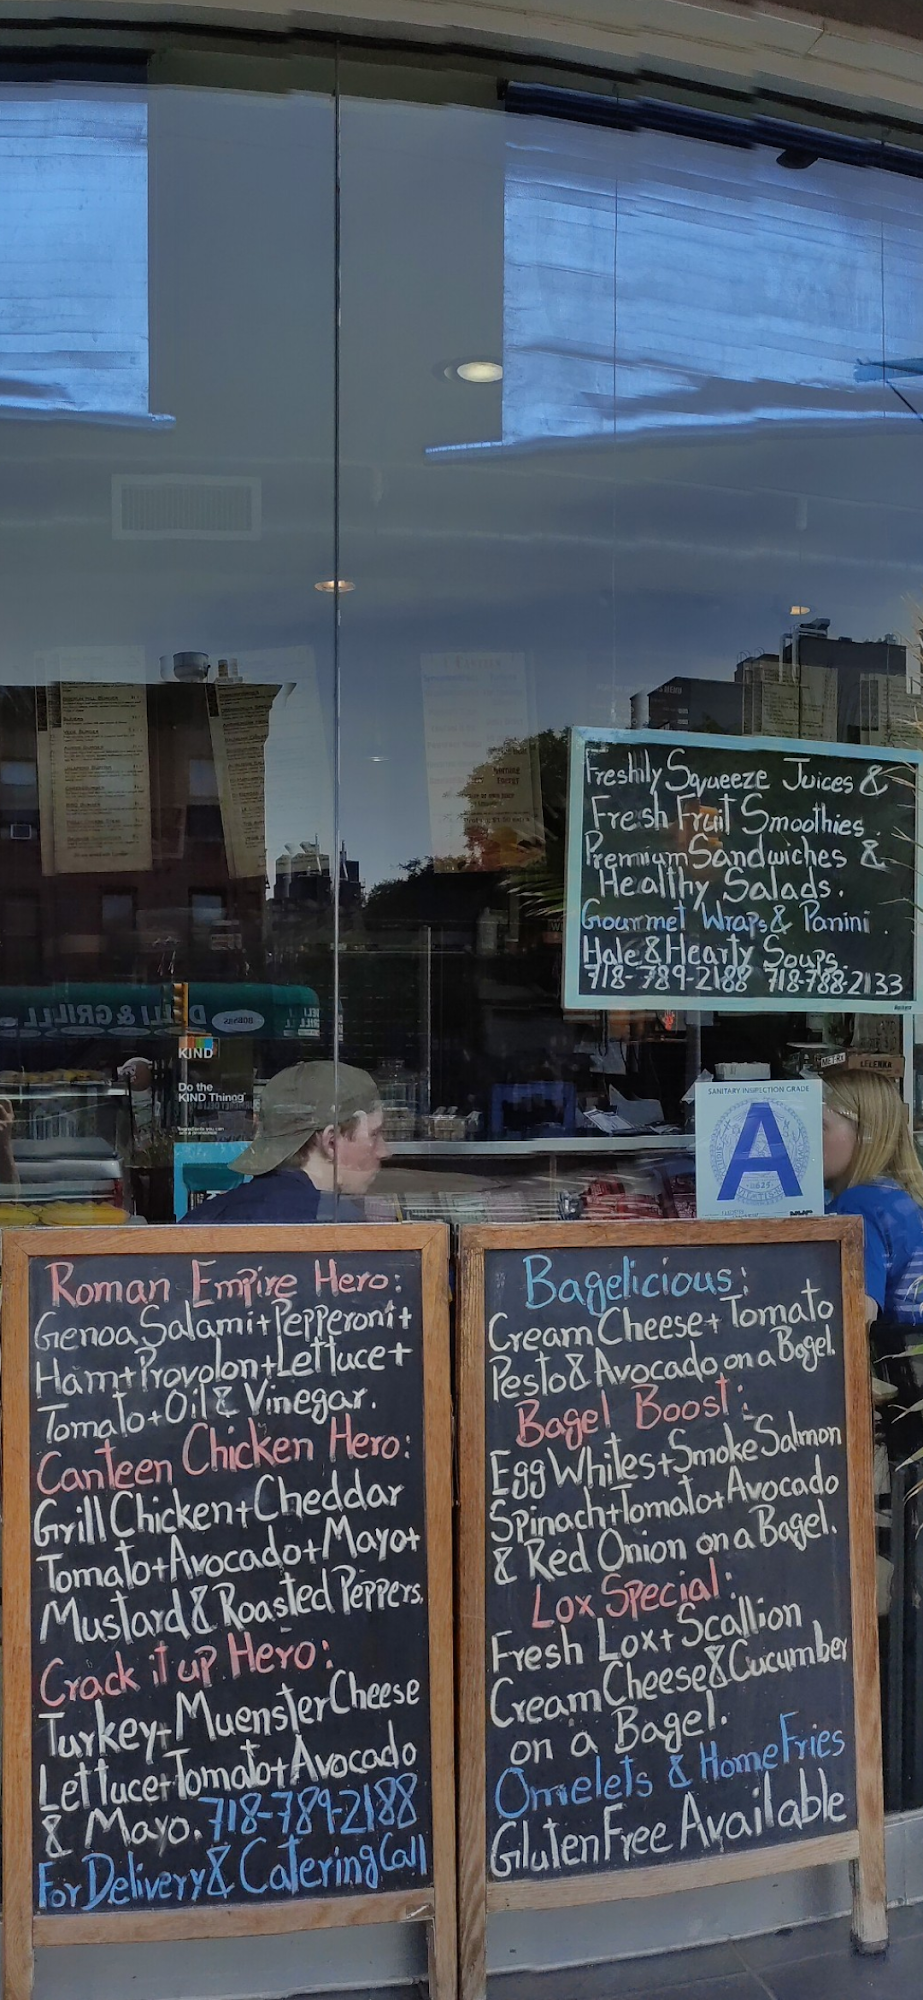 Freshly Squeeze Juices &
Fresh Fruit Smoothies
Premium Sandwiches &
Healthy Salads.
Gourmet Wraps & Panini
Hale & Hearty Soups.
718-789-2188 718-788-2133
KIND
Do the
KIND Thing
DELI & GRILL
SANITARY INSPECTION GRADE
A
Roman Empire Hero:
Genoa Salami+Pepperoni+
Ham+Provolon+Lettuce+
Tomato+Oil & Vinegar.
Canteen Chicken Hero:
Grill Chicken+Cheddar
Tomato+Avocado+Mayo+
Mustard & Roasted Peppers.
Crack it up Hero:
Turkey+Muenster Cheese
Lettuce+Tomato+Avocado
& Mayo. 718-789-2188
For Delivery & Catering Call
Bagelicious:
Cream Cheese+Tomato
Pesto & Avocado on a Bagel.
Bagel Boost:
Egg Whites+Smoke Salmon
Spinach+Tomato+Avocado
& Red Onion on a Bagel.
Lox Special:
Fresh Lox+Scallion
Cream Cheese & Cucumber
on a Bagel.
Omelets & Home Fries
Gluten Free Available